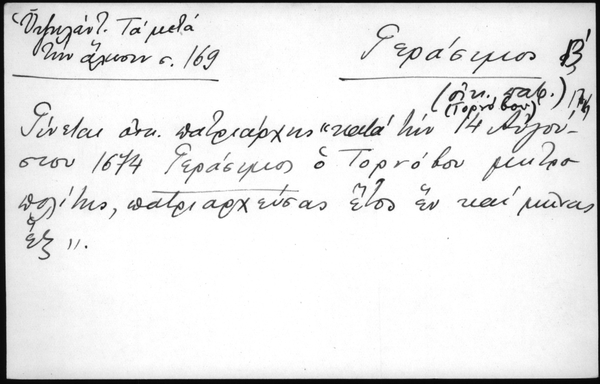 Ὑψηλάντ. Τά μετά
τήν ἅλωσιν σ. 169
Γεράσιμος Β΄
(οἰκ. πατρ.)
(Τορνόβου)
Γίνεται οἰκ. πατριάρχης "κατά τήν 14 Αὐγού-
στου 1674 Γεράσιμος ὁ Τορνόβου μητρο
πολίτης, πατριαρχεύσας ἔτος ἕν καί μῆνας
ἕξ".